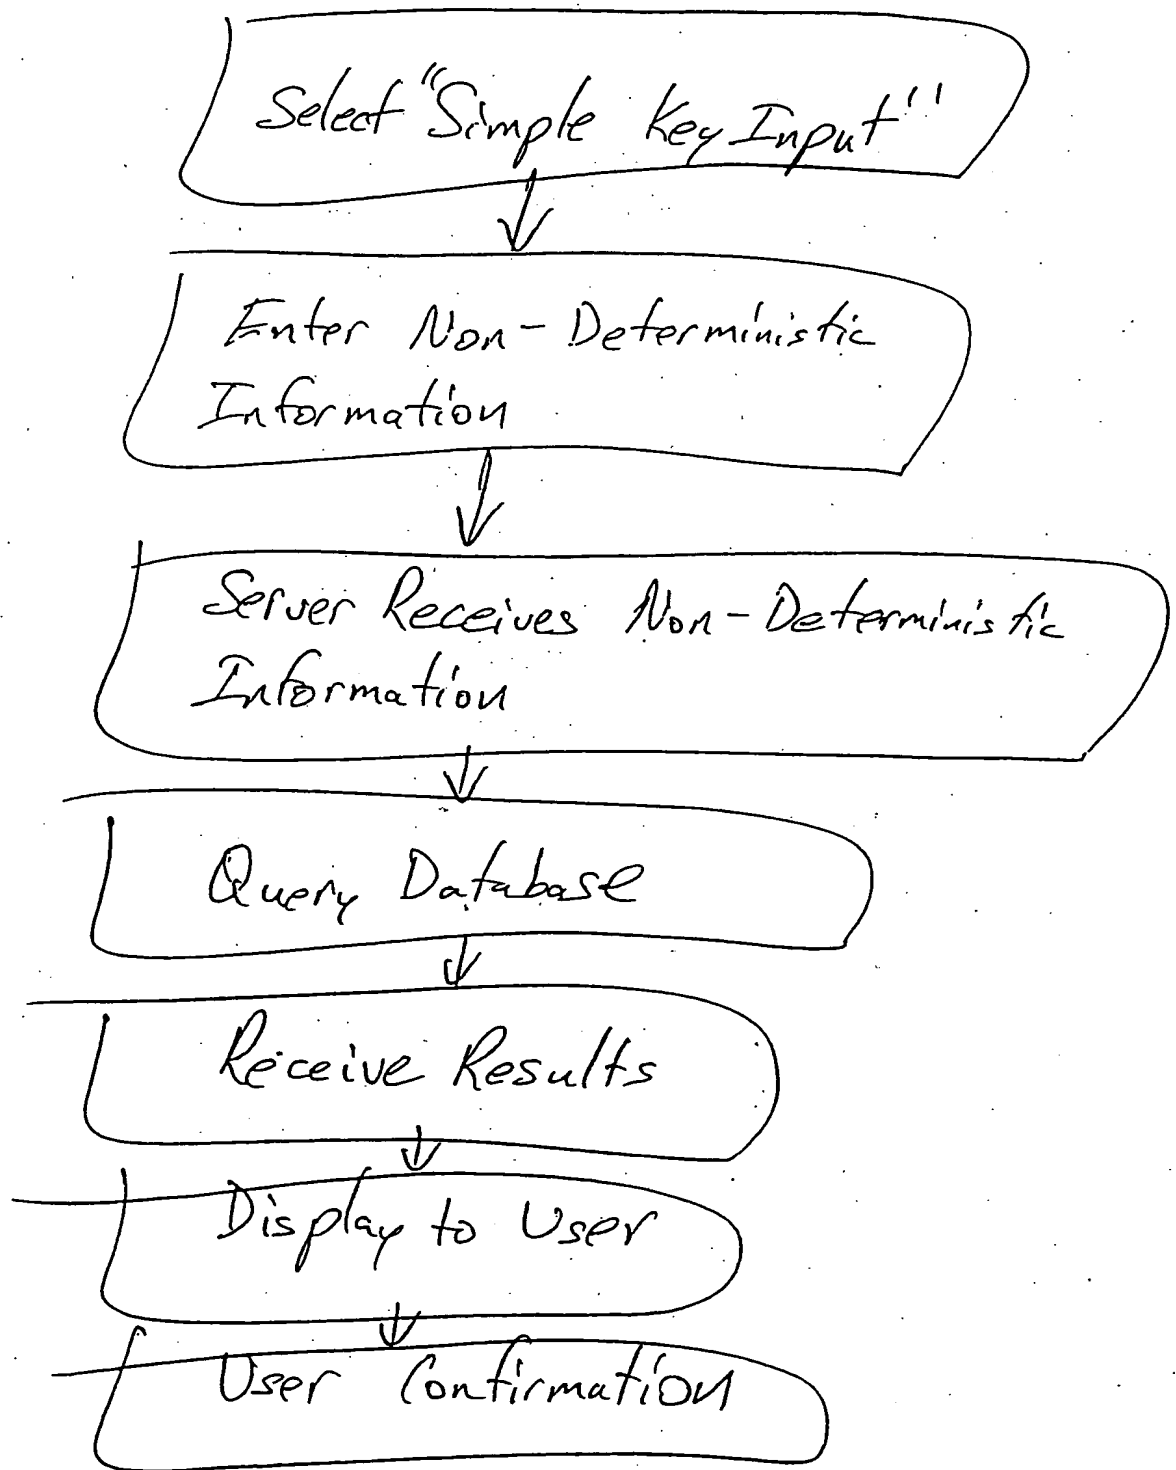 Select "Simple Key Input"
Enter Non-Deterministic
Information
Server Receives Non-Deterministic
Information
Query Database
Receive Results
Display to User
User Confirmation